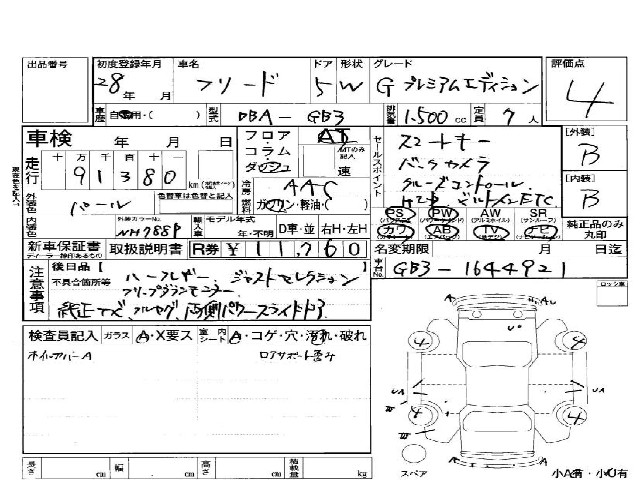 出品番号 初度登録年月 車名 ドア 形状 グレード 評価点
28年 月 フリード 5 W Gプレミアムエディション 4
車歴 自家用・( ) 型式 DBA-GB3 排気量 1.500cc 定員 7人
車検 年 月 日 フロア・コラム・ダッシュ AT MTのみ記入 速
セールスポイント スマートキー
バックカメラ
クルーズコントロール
ビルトインETC
[外装] B
[内装] B
走行 十 万 千 百 十 一
91380 km
外装色 パール 色替車は色替と記入
冷房 AAC
燃料 ガソリン・軽油・( )
内装色 外装カラーNo. NH788P 輸入車 モデル年式 年・不明 D車・並 右H・左H
PS PW AW SR
カワ AB TV ナビ
純正品のみ丸印
新車保証書 取扱説明書 R券 ¥11,760
名変期限 月 日迄
車台No. GB3-1644921
注意事項 不具合箇所等
後日品[ ] ハーフレザー ジャストセレクション
純正ナビ、フルセグ、両側パワースライドドア
検査員記入 ガラス A・X要ス 室内 シート A・コゲ・穴・汚れ・破れ
ホイールカバーA
ロアサポート歪み
ロッシ車
A AU
U
4 4
UA UA
4 4
A
スペア
小A有・小U有
長さ cm 幅 cm 高さ cm 積載量 kg